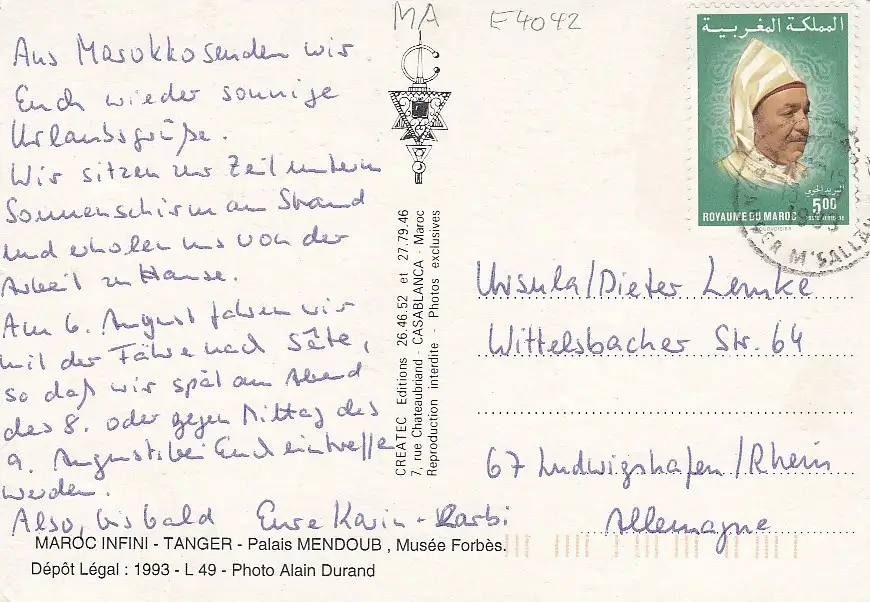 MA E4042
Aus Marokko senden wir
Euch wieder sonnige
Urlaubsgrüße.
Wir sitzen zur Zeit unterm
Sonnenschirm am Strand
und erholen uns von der
Arbeit zu Hause.
Am 6. August fahren wir
mit der Fähre nach Sête,
so daß wir spät am Abend
des 8. oder gegen Mittag des
9. Augusts bei Euch eintreffen
werden.
Also, bis bald Eure Karin + Larbi
MAROC INFINI - TANGER - Palais MENDOUB , Musée Forbès.
Dépôt Légal : 1993 - L 49 - Photo Alain Durand
CREATEC Editions 26.46.52 et 27.79.46
7, rue Chateaubriand - CASABLANCA - Maroc
Reproduction interdite - Photos exclusives
المملكة المغربية
البريد الجوي
5,00
ROYAUME DU MAROC
M'SALLAH
Ursula/Dieter Lemke
Wittelsbacher Str. 64
67 Ludwigshafen/Rhein
Allemagne